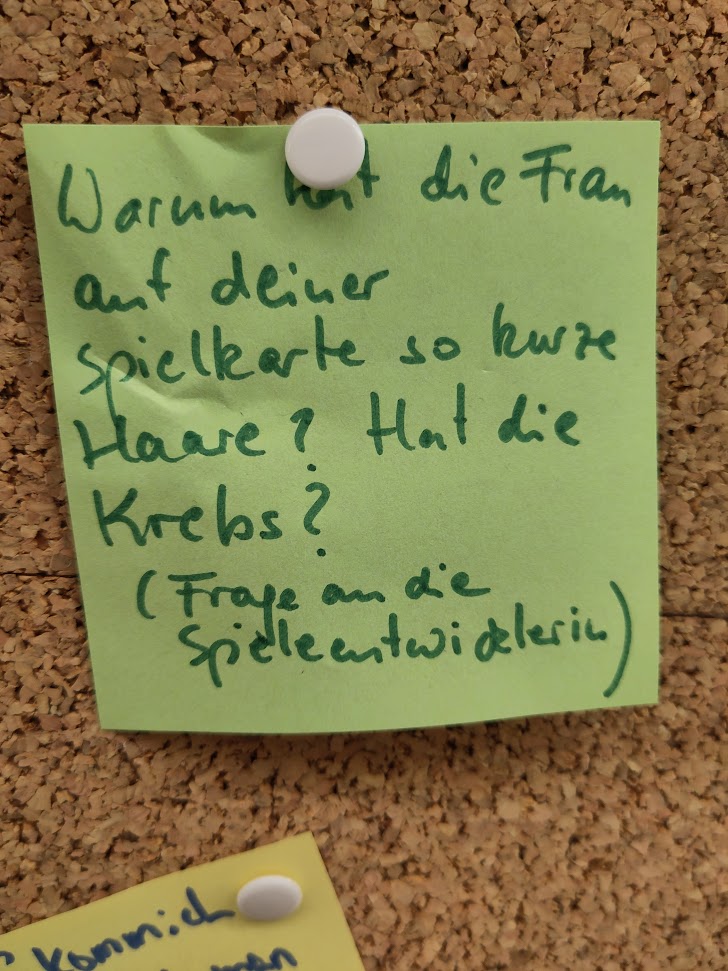 Warum hat die Frau
auf deiner
Spielkarte so kurze
Haare? Hat die
Krebs?
(Frage an die
Spieleentwicklerin)
komm ich